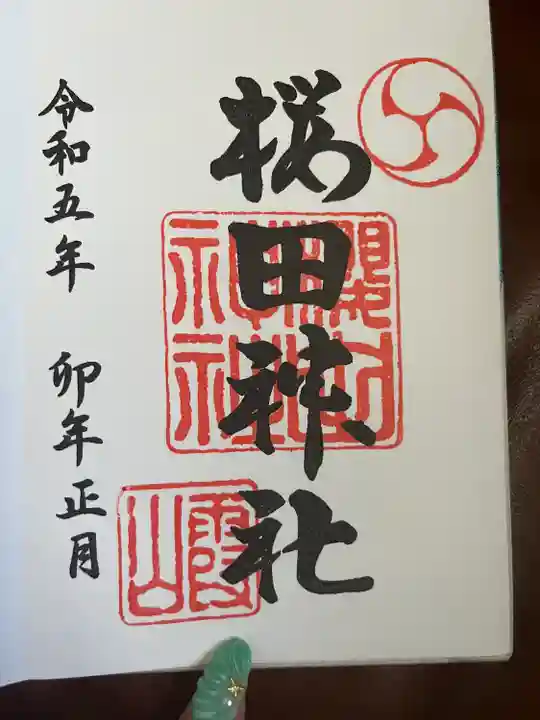 桜田神社
櫻田
神社
霞山
令和五年 卯年正月